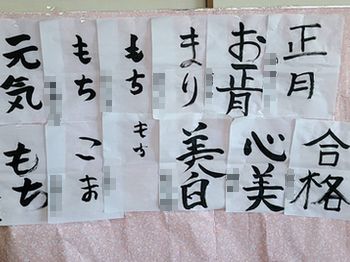 正月
お正月
まり
もち
もち
元気
合格
心美
美白
もち
こま
もち